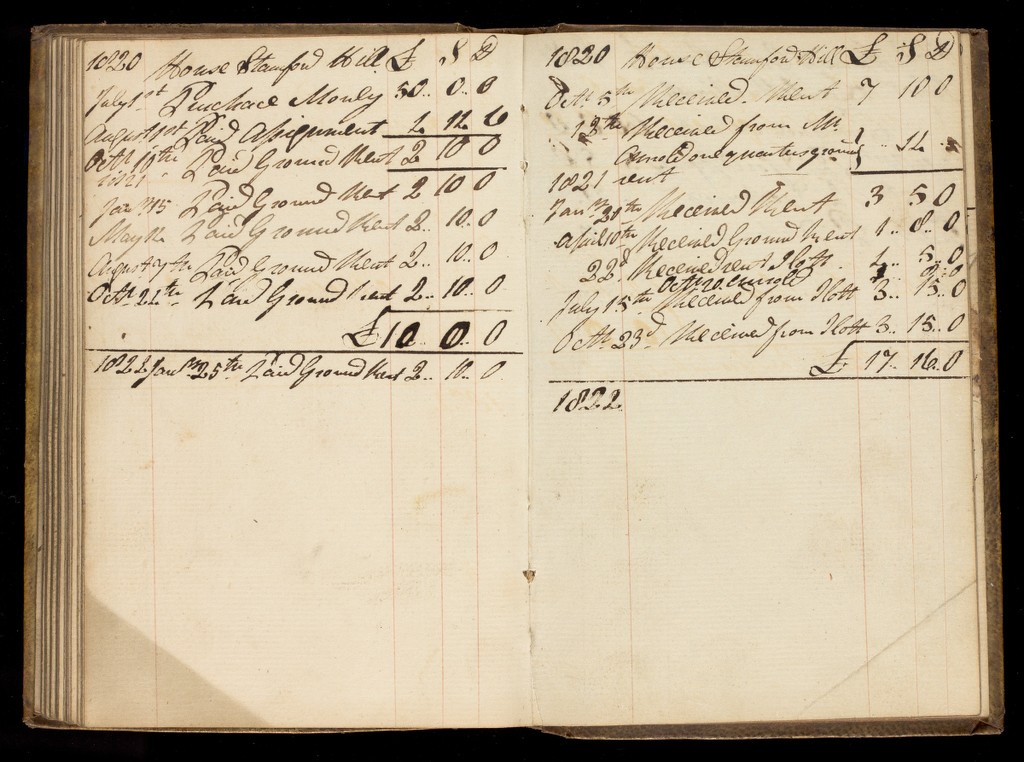 1820 House Stamford Hill £ S D
July 1st Purchace Money 50.. 0.. 0
August 1st Paid Assignment 12 6
Octr 10th Paid Ground Rent 2 10 0
1821
Janry 15 Paid Ground Rent 2 10 0
May 12 Paid Ground Rent 2.. 10.. 0
August 7th Paid Ground Rent 2.. 10.. 0
Octr 24th Paid Ground Rent 2.. 10.. 0
£10.. 0.. 0
1822 Janry 25th Paid Ground Rent 2.. 10.. 0
1820 House Stamford Hill £ S D
Octr 5th Received Rent 7 10 0
13th Received from Mr
Arnold one quarters ground
1821 rent
Janry 20th Received Rent 3 5 0
April 10th Received Ground Rent 1.. 8.. 0
22d Received rent Ilott 5.. 0
July 15th Received from Ilott 3.. 15.. 0
Octr 23d Received from Ilott 3.. 15.. 0
£17.. 16.. 0
1822